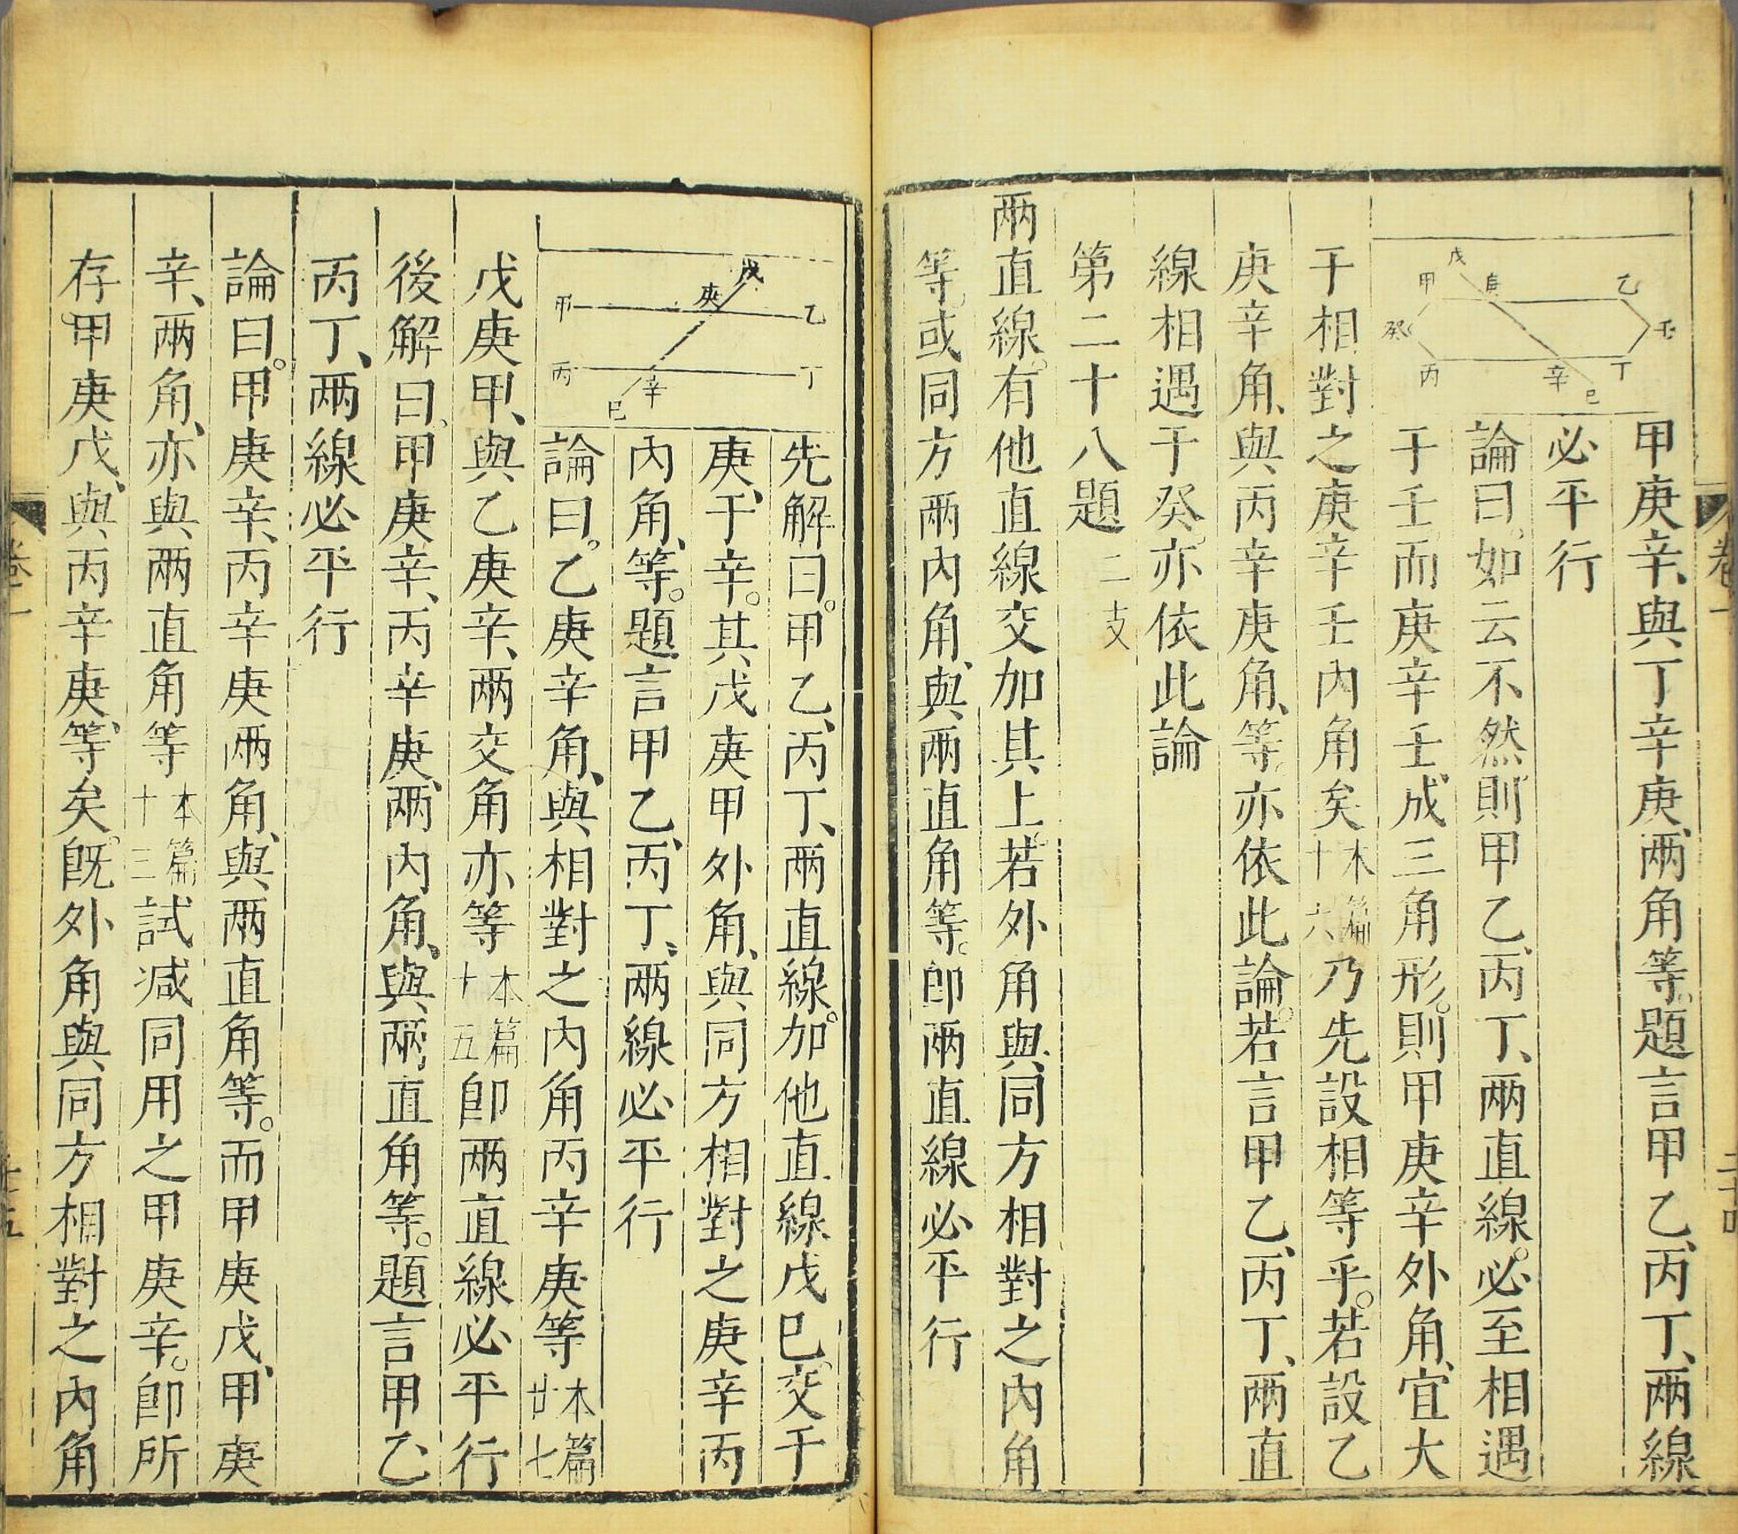 甲庚辛、與丁辛庚、兩角等。題言甲乙、丙丁、兩線
必平行
論曰。如云不然則甲乙、丙丁、兩直線。必至相遇
于壬而庚辛壬、成三角形。則甲庚辛外角、宜大
于相對之庚辛壬內角矣本篇十六乃先設相等乎。若設乙
庚辛角、與丙辛庚角、等、亦依此論。若言甲乙、丙丁、兩直
線相遇于癸。亦依此論
第二十八題二支
兩直線。有他直線交加其上。若外角與同方相對之內角
等。或同方兩內角、與兩直角等。卽兩直線必平行
先解曰。甲乙、丙丁、兩直線。加他直線戊巳。交于
庚、于辛。其戊庚甲外角、與同方相對之庚辛丙
內角、等。題言甲乙、丙丁、兩線必平行
論曰。乙庚辛角、與相對之內角丙辛庚等本篇廿七
戊庚甲、與乙庚辛、兩交角亦等本篇十五卽兩直線必平行
後解曰、甲庚辛、丙辛庚、兩內角、與兩直角等。題言甲乙
丙丁、兩線必平行
論曰。甲庚辛、丙辛庚兩角、與兩直角等。而甲庚戊、甲庚
辛、兩角、亦與兩直角等本篇十三試减同用之甲庚辛。卽所
存。甲庚戊、與丙辛庚、等矣。旣外角與同方相對之內角
戊
甲
庚
乙
癸
壬
丙
辛
丁
巳
戊
庚
甲
乙
丙
辛
丁
巳
卷一
卷一